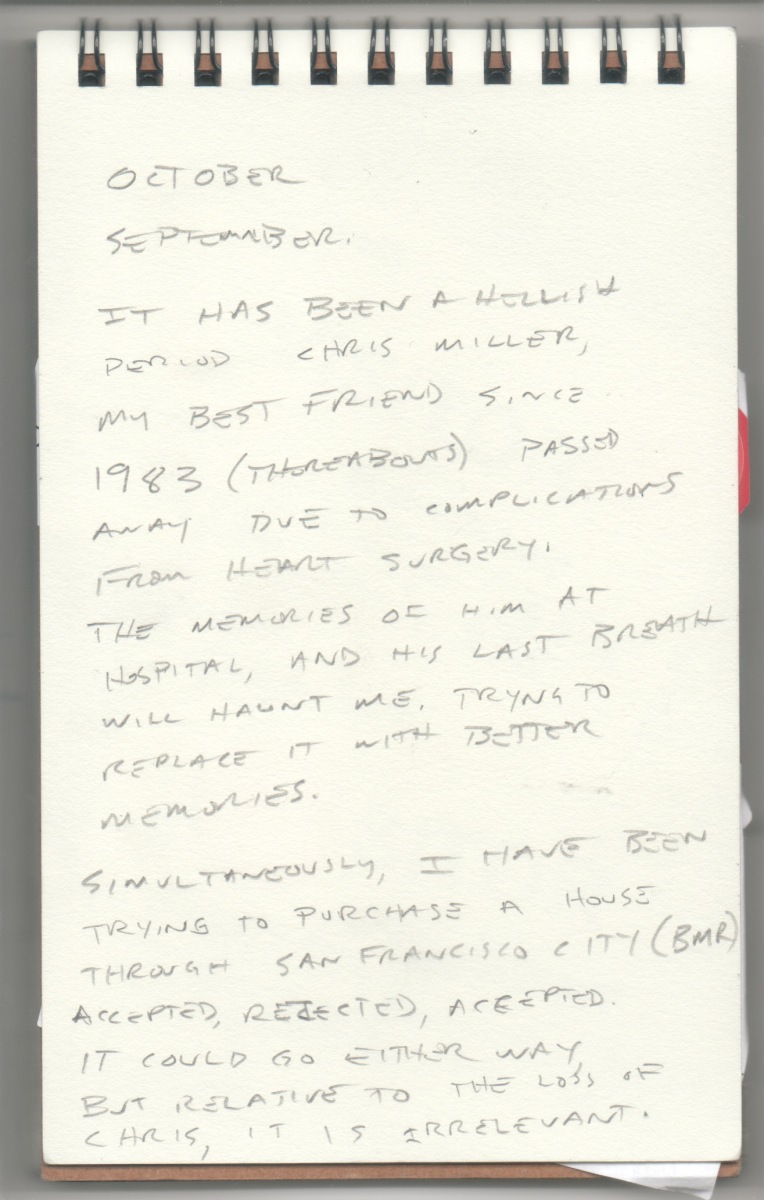 OCTOBER
SEPTEMBER.
IT HAS BEEN A HELLISH
PERIOD CHRIS MILLER,
MY BEST FRIEND SINCE
1983 (THEREABOUTS) PASSED
AWAY DUE TO COMPLICATIONS
FROM HEART SURGERY.
THE MEMORIES OF HIM AT
HOSPITAL, AND HIS LAST BREATH
WILL HAUNT ME. TRYNG TO
REPLACE IT WITH BETTER
MEMORIES.
SIMULTANEOUSLY, I HAVE BEEN
TRYING TO PURCHASE A HOUSE
THROUGH SAN FRANCISCO CITY (BMR)
ACCEPTED, REJECTED, ACCEPTED.
IT COULD GO EITHER WAY
BUT RELATIVE TO THE LOSS OF
CHRIS, IT IS IRRELEVANT.